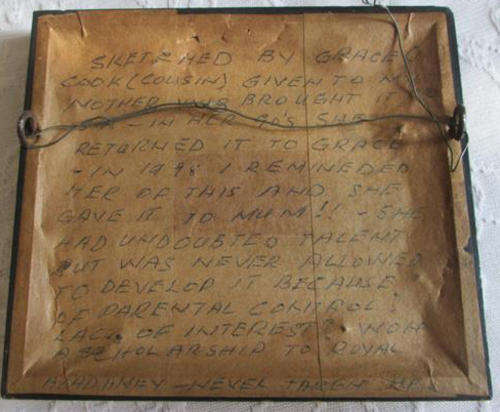 SKETCHED BY GRACE O
COOK (COUSIN) GIVEN TO MY
MOTHER WHO BROUGHT IT TO
- IN HER 90'S SHE
RETURNED IT TO GRACE
- IN 1998 I REMINEDED
HER OF THIS AND SHE
GAVE IT TO MUM!! - SHE
HAD UNDOUBTED TALENT
BUT WAS NEVER ALLOWED
TO DEVELOP IT BECAUSE
OF PARENTAL CONTROL?
LACK OF INTEREST? WON
A SCHOLARSHIP TO ROYAL
ACADAMEY - NEVER TAKEN UP